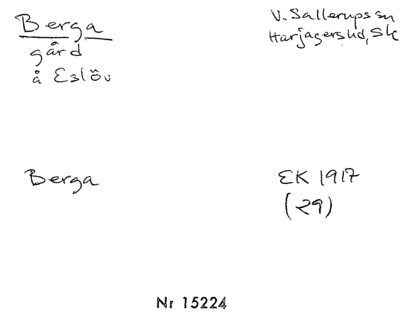 Berga
gård
å Eslöv
V. Sallerups sn
Harjagers hd, Sk
Berga
EK 1917
(29)
Nr 15224